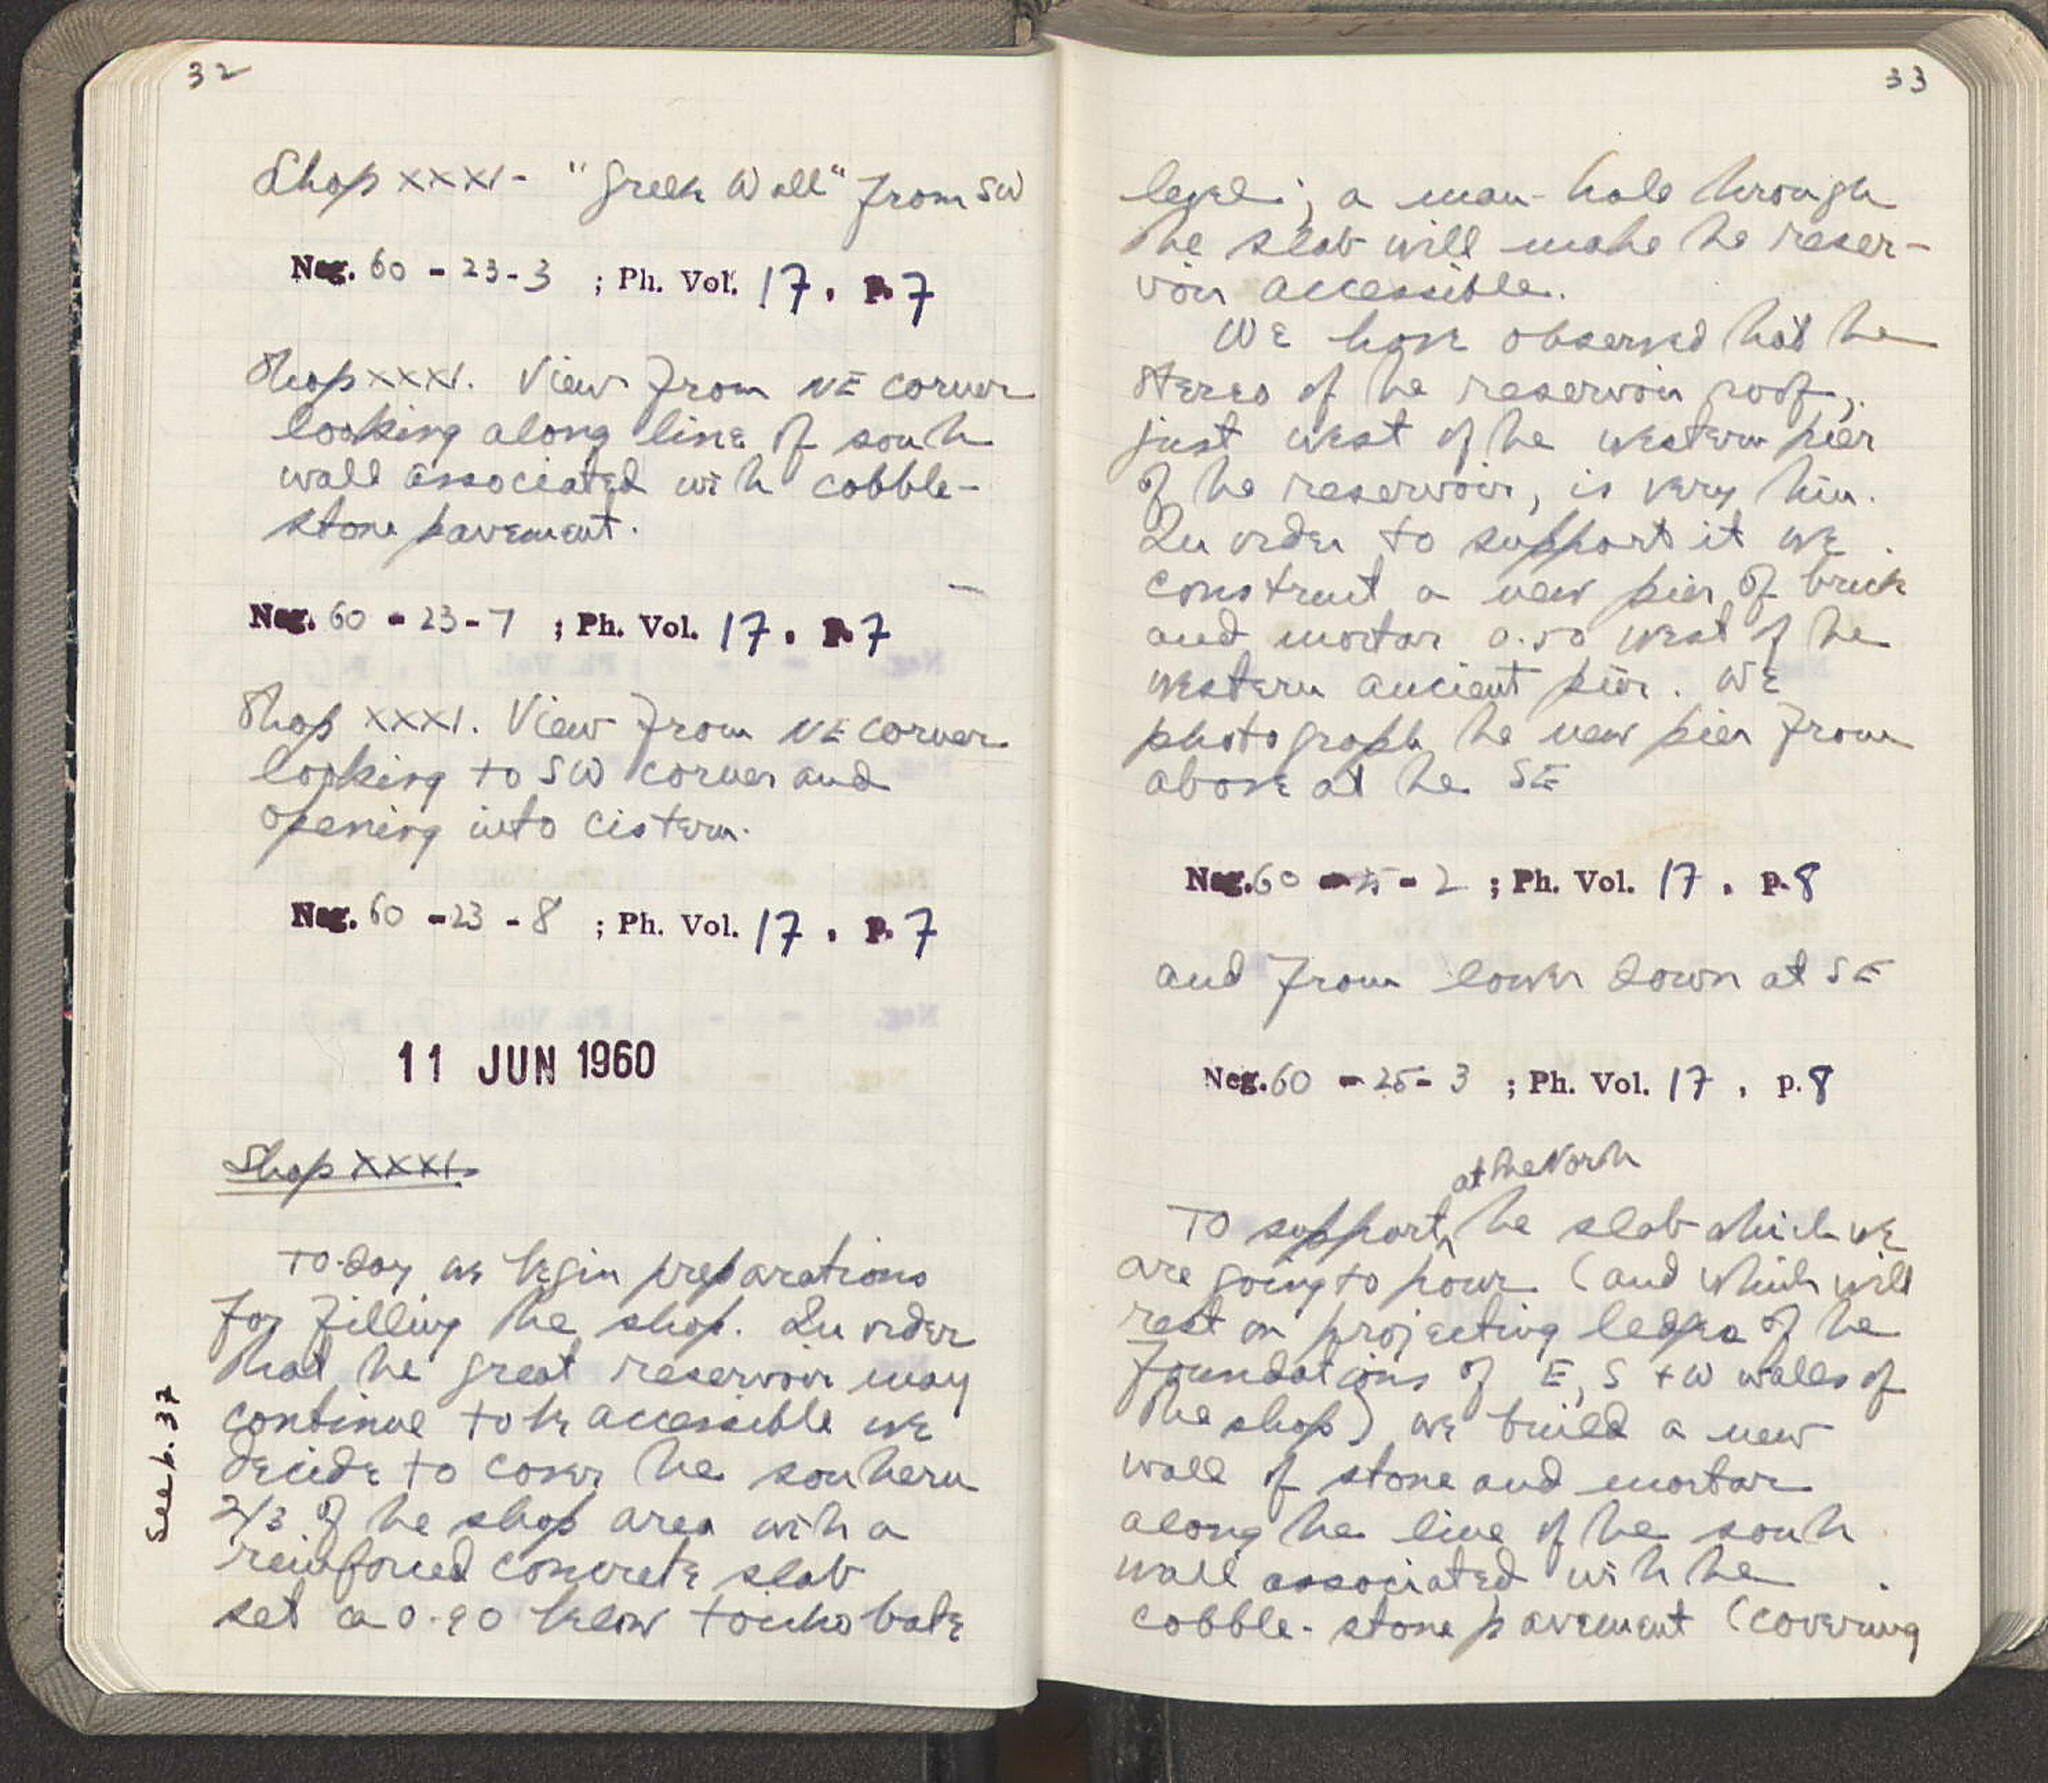 32
Shop XXXI - "Greek Wall" from SW
Neg. 60 - 23 - 3 ; Ph. Vol. 17 , p. 7
Shop XXXI. View from NE corner
looking along line of south
wall associated with cobble-
stone pavement.
Neg. 60 - 23 - 7 ; Ph. Vol. 17 , p. 7
Shop XXXI. View from NE corner
looking to SW corner and
opening into cistern.
Neg. 60 - 23 - 8 ; Ph. Vol. 17 , p. 7
11 JUN 1960
Shop XXXI.
To-day we begin preparations
for filling the shop. In order
that the great reservoir may
continue to be accessible we
decide to cover the southern
2/3 of the shop area with a
reinforced concrete slab
set ca 0.90 below toichobate
See p. 37
33
level; a man-hole through
the slab will make the reser-
voir accessible.
We have observed that the
stereo of the reservoir roof,
just west of the western pier
of the reservoir, is very thin.
In order to support it we
construct a new pier of brick
and mortar 0.50 west of the
western ancient pier. We
photograph the new pier from
above at the SE
Neg. 60 - 25 - 2 ; Ph. Vol. 17 , p. 8
and from lower down at SE
Neg. 60 - 25 - 3 ; Ph. Vol. 17 , p. 8
at the North
To support the slab which we
are going to pour (and which will
rest on projecting ledges of the
foundations of E, S + W walls of
the shop) we build a new
wall of stone and mortar
along the line of the south
wall associated with the
cobble-stone pavement (covering